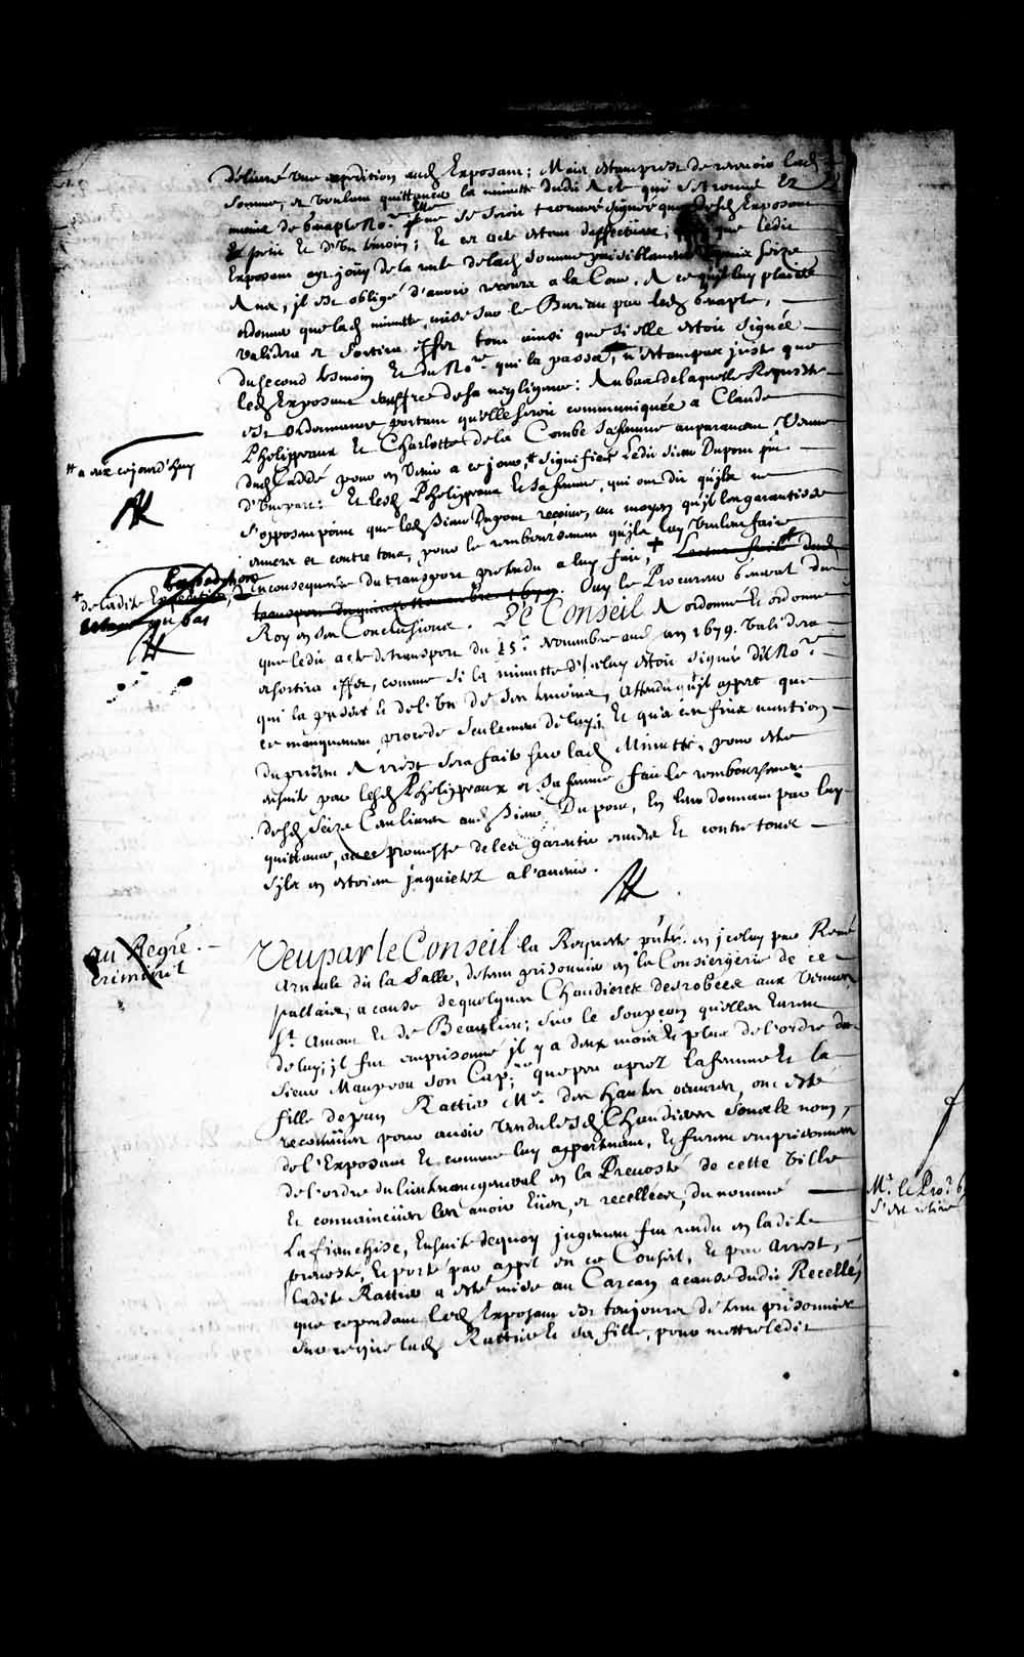 délivré une expedition aud. Exposant; Mais estant prest de recevoir lad.
somme, et voulant quittancer la minutte dudit Acte qui se trouve Es
mains de Snaple No.re elle ne se seroit trouvée signée que desd. Exposant
et d'un tesmoin; Et cet acte estant deffectueux, que ledit
Exposant ayt jouy de la rente de lad. somme paisiblement depuis seize
Ans, il est obligé d'avoir recours a la Cour. A ce qu'il luy plaise
ordonner que lad. minutte, mise sur le Bureau par led. Snaple,
validera et sortira effet tout ainsi que si elle estoit signée
du second tesmoin Et du No.re qui la passée, n'estant pas juste que
led. Exposant souffre de sa negligence: Au bas de laquelle Requeste
est Ordonnance portant qu'elle seroit communiquée a Claude
Phelippeaux Et Charlotte de la Combe sa femme auparavant Veuve
dud. pour en venir a ce jour, signifiée Ledit sieur Dupont
d'Unepart: Et lesd. Phelippeaux Et sa femme, qui ont dit qu'ils ne
s'opposent point que led. Sieur Dupont recoive, au moyen qu'il les garantisse
envers et contre tous, pour le remboursement qu'ils luy veulent faire
En consequence du transport pretendu a luy fait, + Lecture faite dud.
transport du quinze Novembre 1679. Ouy le Procureur General du
Roy en ses Conclusions. Le Conseil A ordonné Et ordonne
que ledit acte de transport du 15.e Novembre aud. an 1679. validera
et sortira effet, comme si la minutte d'Iceluy estoit signée du No.re
qui la passé Et de l'Un de ses tesmoins, attendu qu'il appert que
ce manquement procede seulement de luy; Et qu'a cette fin mention
du present Arrest sera faite sur lad. Minutte, pour estre
ensuite par lesd. Phelippeaux et sa femme fait le remboursement
desd. seize Cent livres aud. Sieur Dupont, En leur donnant par luy
quittance, avec promesse de les garantir envers Et contre tous
s'ils en estoient inquietez a l'avenir.
+ a eux cejourd'huy
+ de ladite Expedition,
qui bas
au Regre.
criminel
Veu par le Conseil la Requeste pntée. en iceluy par René
Arnault dit la Salle, detenu prisonnier en la Consiergerie de ce
pallais, a cause de quelques Chaudieres desrobées aux Veuves
St. Amant Et de Beaulieu; Sur le soupçon qu'elles Eurent
de luy; il fut emprisonné il y a deux mois Et plus de l'ordre du
Sieur Maupeou son Cap.ne que peu aprez la femme Et la
fille de Jean Rattier M.e des hautes oeuvres, ont esté
reconnües pour avoir Vendu lesd. Chaudieres soubs le nom
de l'Exposant Et comme luy appartenant, Et furent emprisonnées
de l'ordre du lieutenant general en la Prevosté de cette Ville
Et convaincües les avoir Eües, et recellées, du nommé
La franchise, Ensuite dequoy jugement fut rendu en ladite
prevosté, Et porté par appel en ce Conseil, Et par arrest,
ladite Rattier a esté mise au Carcan a cause dudit Recellé,
que cependant led. Exposant est toujours detenu prisonnier
sur ce que lad. Rattier Et sa fille, pour mettre ledit
M.r le Pro.r G
s'est retiré